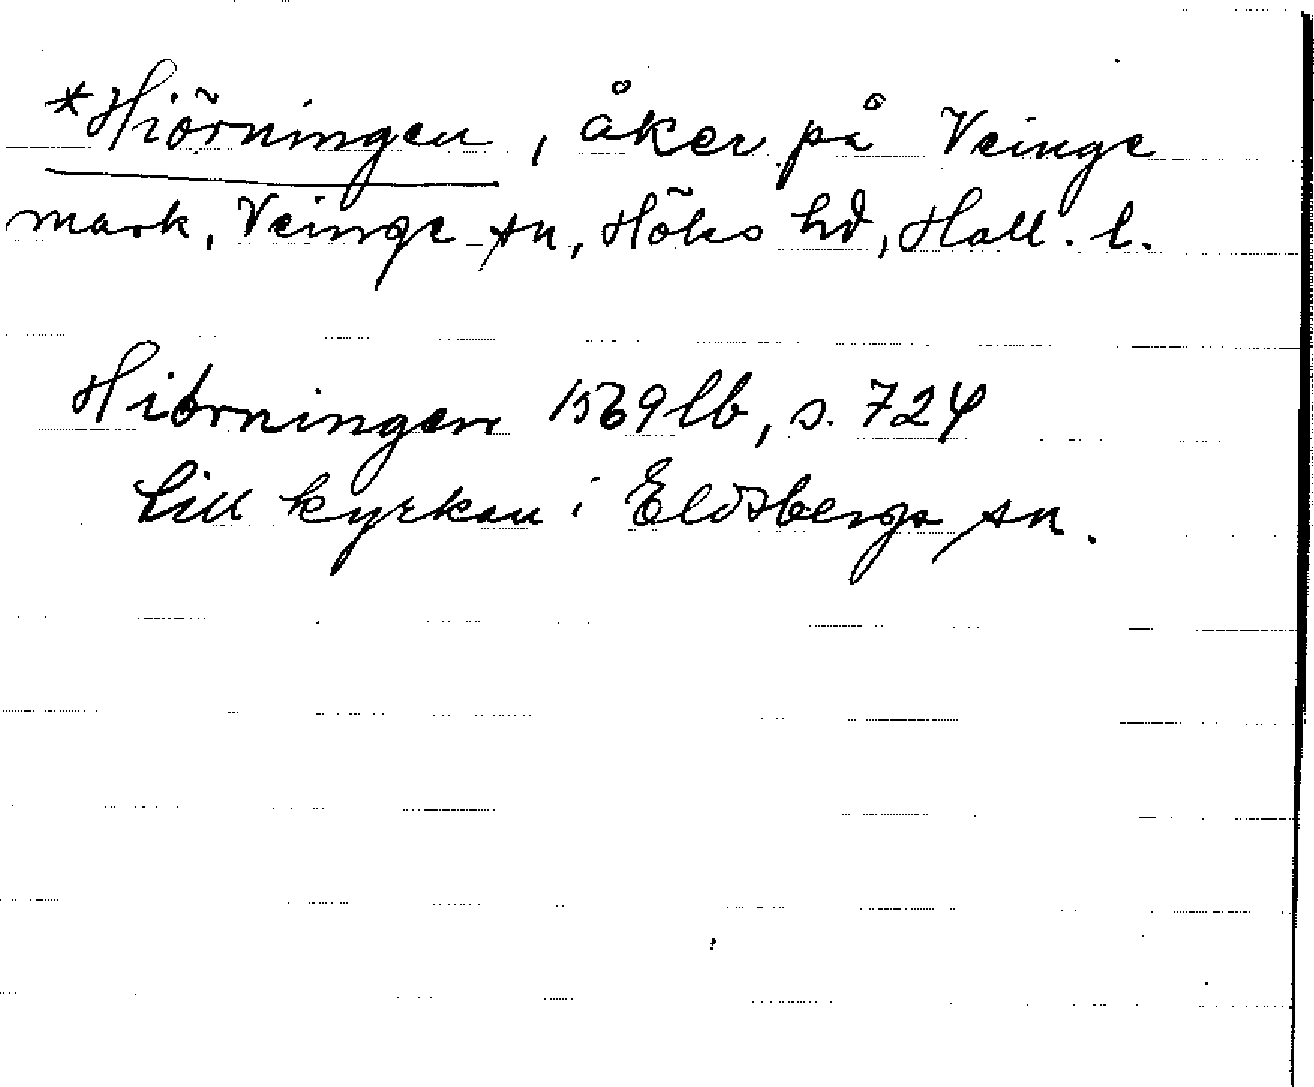 *Hiörningen, åker på Veinge
mark, Veinge sn, Höks hd, Hall. l.
Hiörningen 1569 lb, s. 724
till kyrkan i Eldsberga sn.